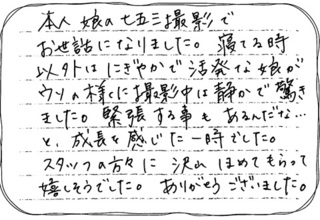 本人 娘の七五三撮影で
お世話になりました。寝てる時
以外はにぎやかで活発な娘が
ウソの様に撮影中は静かで驚き
ました。緊張する事もあるんだな…
と、成長を感じた一時でした。
スタッフの方々に沢山ほめてもらって
嬉しそうでした。ありがとうございました。